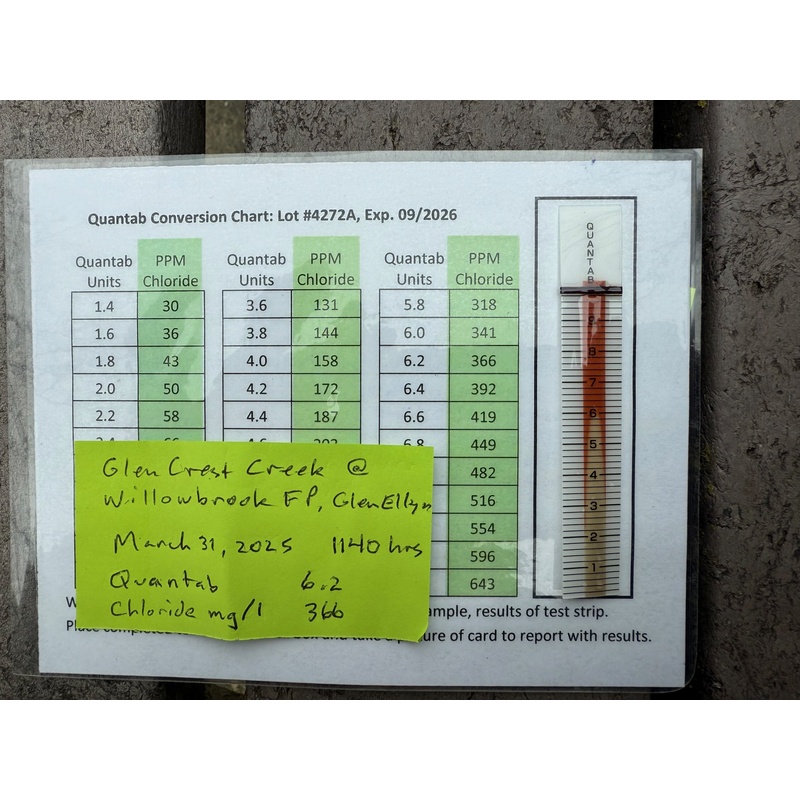 Quantab Conversion Chart: Lot #4272A, Exp. 09/2026
Quantab Units PPM Chloride Quantab Units PPM Chloride Quantab Units PPM Chloride
1.4 30 3.6 131 5.8 318
1.6 36 3.8 144 6.0 341
1.8 43 4.0 158 6.2 366
2.0 50 4.2 172 6.4 392
2.2 58 4.4 187 6.6 419
6.8 449
482
516
554
596
643
Glen Crest Creek @
Willowbrook FP, Glen Ellyn
March 31, 2025 1140 hrs
Quantab 6.2
Chloride mg/l 366
ample, results of test strip.
Place of card to report with results.
QUANTAB
8
7
6
5
4
3
2
1